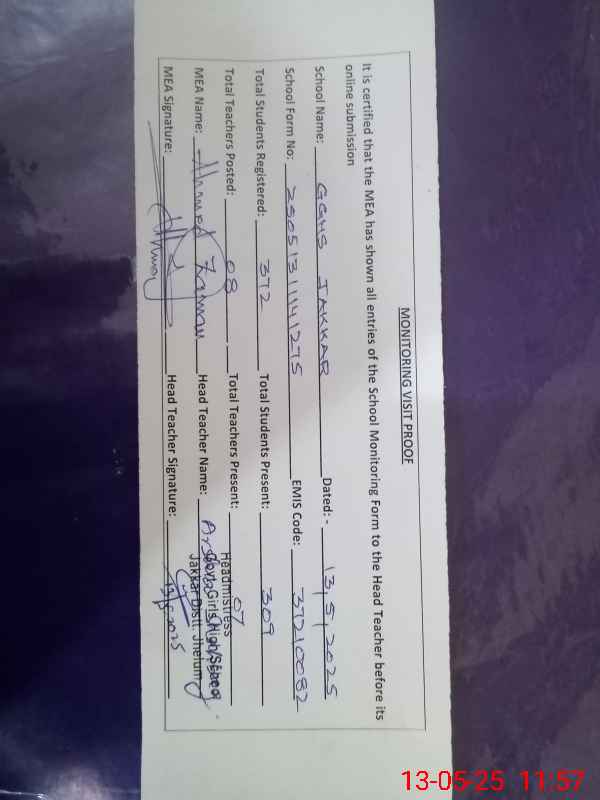 MONITORING VISIT PROOF
It is certified that the MEA has shown all entries of the School Monitoring Form to the Head Teacher before its
online submission
School Name: GGHS JAKKAR Dated: - 13/5/2025
School Form No: EMIS Code: 37210082
Total Students Registered: 372 Total Students Present: 309
Total Teachers Posted: 08 Total Teachers Present: 07
MEA Name: Ahmed Zaman Head Teacher Name:
MEA Signature: Head Teacher Signature: 13/5/2025
Headmistress
Govt. Girls High School
Jakkar Distt Jhelum
13-05-25 11:57